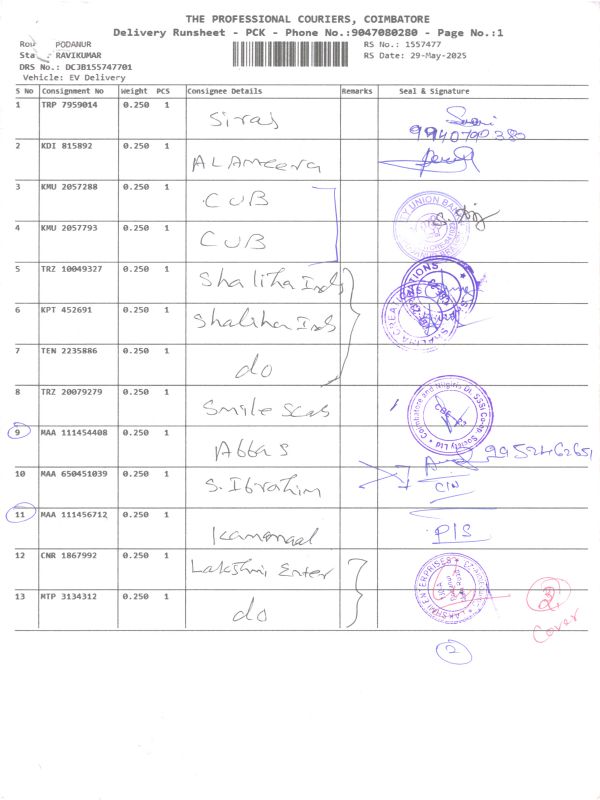 THE PROFESSIONAL COURIERS, COIMBATORE
Delivery Runsheet - PCK - Phone No.:9047080280 - Page No.:1
Rou PODANUR RS No.: 1557477
Sta RAVIKUMAR RS Date: 29-May-2025
DRS No.: DCJB155747701
Vehicle: EV Delivery
S No Consignment No Weight PCS Consignee Details Remarks Seal & Signature
1 TRP 7959014 0.250 1 Siraj
9940790380
2 KDI 815892 0.250 1 ALAmeera
3 KMU 2057288 0.250 1 CUB
4 KMU 2057793 0.250 1 CUB
5 TRZ 10049327 0.250 1 Shaliha Inds
6 KPT 452691 0.250 1 Shaliha Inds
7 TEN 2235886 0.250 1 do
8 TRZ 20079279 0.250 1 Smile Scas
Coimbatore and Nilgiris Dt. SSSI Co-op Society Ltd
9 MAA 111454408 0.250 1 Abbas
9952462651
10 MAA 650451039 0.250 1 S. Ibrahim C/N
11 MAA 111456712 0.250 1 P/S
12 CNR 1867992 0.250 1 Lakshmi Enter
LAKSHMI ENTERPRISES
13 MTP 3134312 0.250 1 do
2
Cover
2